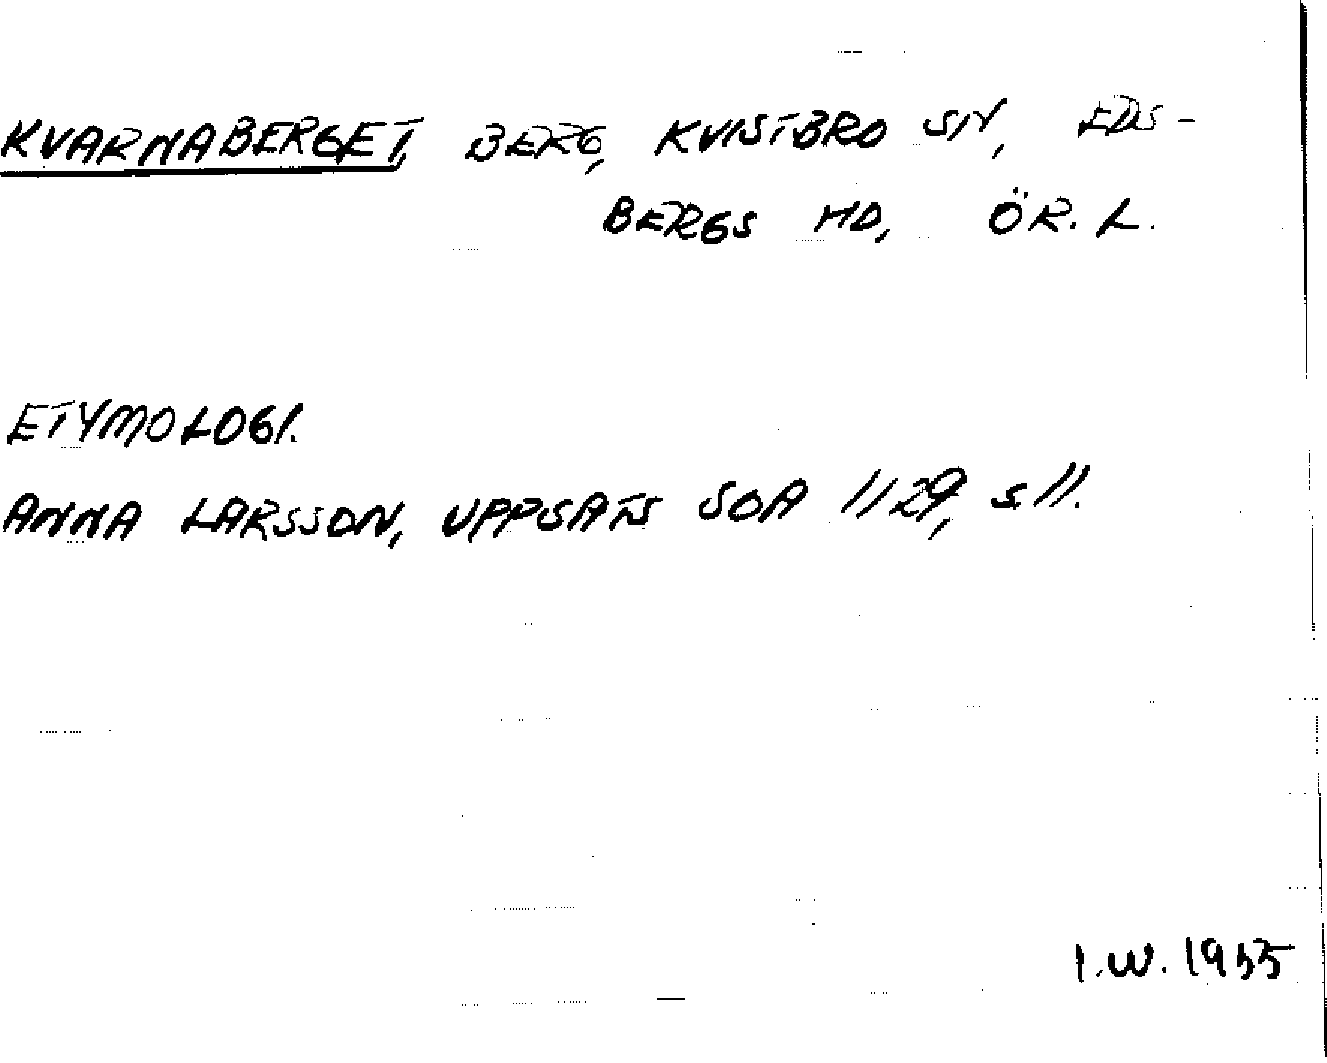 KVARNABERGET, BERG, KVISTBRO SN, EDS-
BERGS HD, ÖR. L.
ETYMOLOGI.
ANNA LARSSON, UPPSATS SOA 1129, S 11.
I.W. 1955